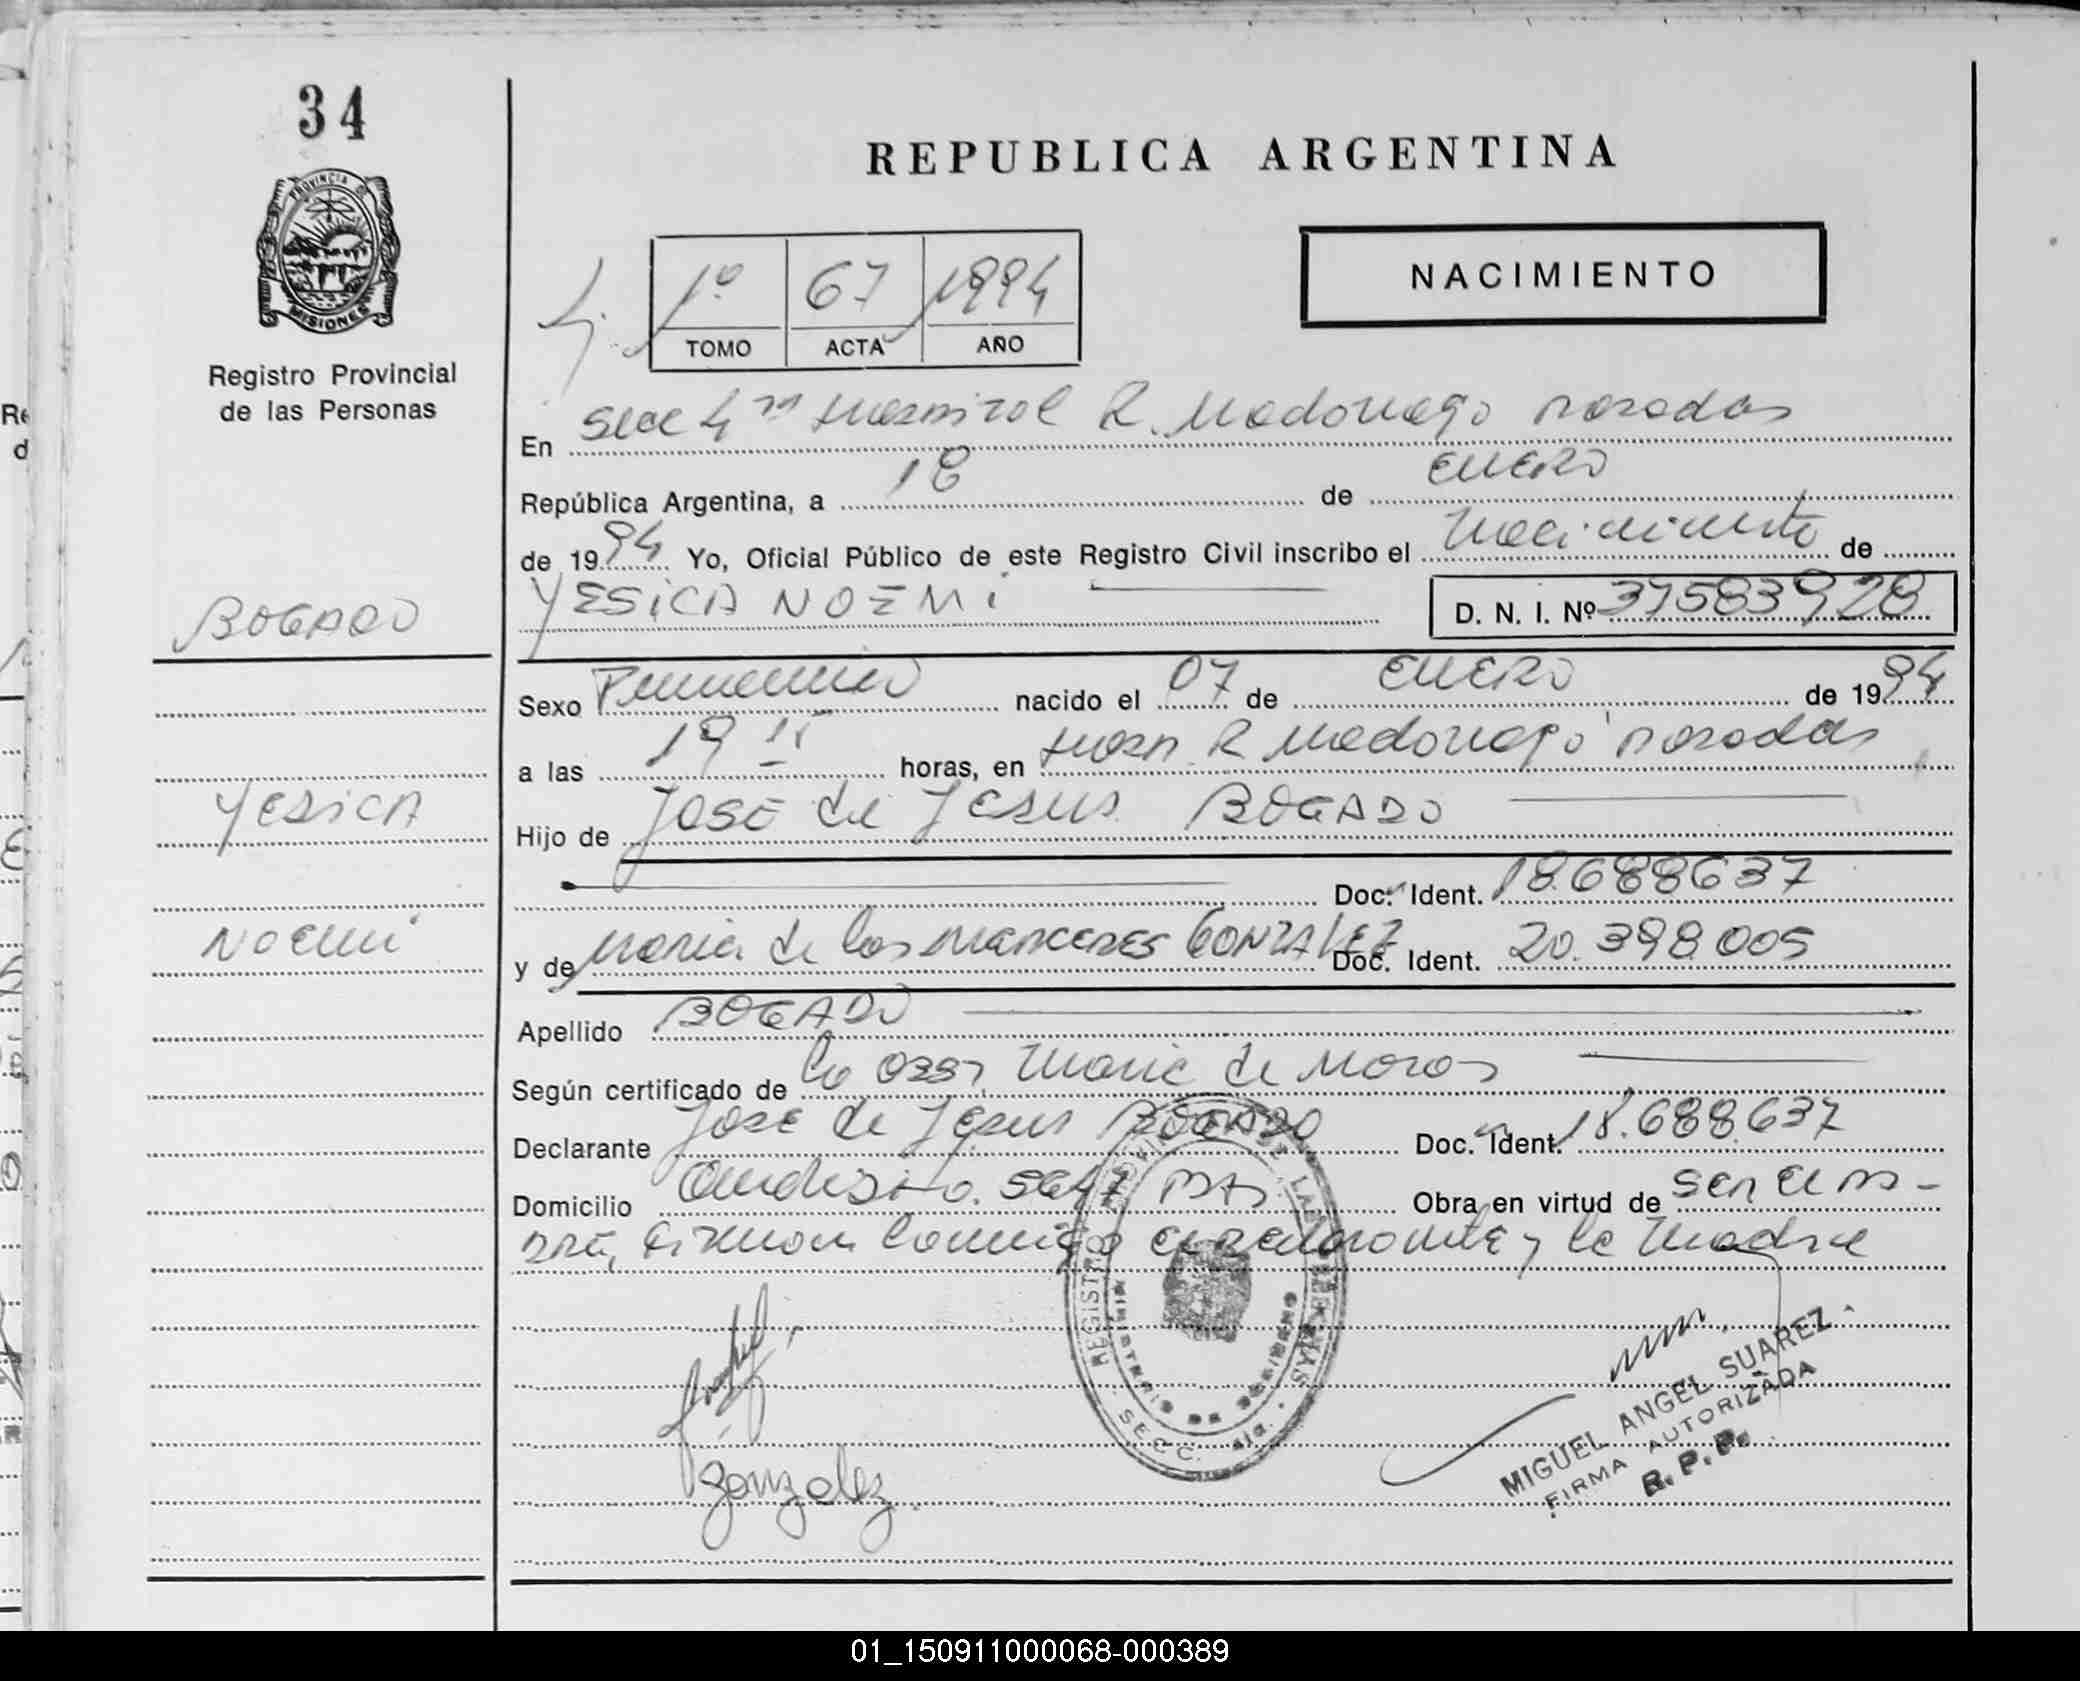 34
REPUBLICA ARGENTINA
PROVINCIA D
MISIONES
Registro Provincial
de las Personas
1º 67 1994
TOMO ACTA AÑO
NACIMIENTO
En Secc 4ta Hospital R. Madariaga Posadas
República Argentina, a 18 de ENERO
de 1994 Yo, Oficial Público de este Registro Civil inscribo el Nacimiento de
BOGADO
YESICA NOEMI
D. N. I. Nº 37583928
Sexo Femenino nacido el 07 de ENERO de 1994
a las 19 15 horas, en Hosp. R Madariaga Posadas
YESICA
Hijo de JOSE de Jesus BOGADO
Doc. Ident. 18.688637
NOEMI
y de Maria de las MARCEDES GONZALEZ Doc. Ident. 20.398.005
Apellido BOGADO
Según certificado de la Obst. Maria de Moras
Declarante Jose de Jesus BOGADO Doc. Ident. 18.688.637
Domicilio 5647 Obra en virtud de ser el pa-
dre, firman conmigo el declarante y la Madre
REGISTRO PROVINCIAL DE LAS PERSONAS
MINISTERIO DE GOBIERNO
SECC. 4ta.
Gonzalez
MIGUEL ANGEL SUAREZ
FIRMA AUTORIZADA
R. P. P.
01_150911000068-000389